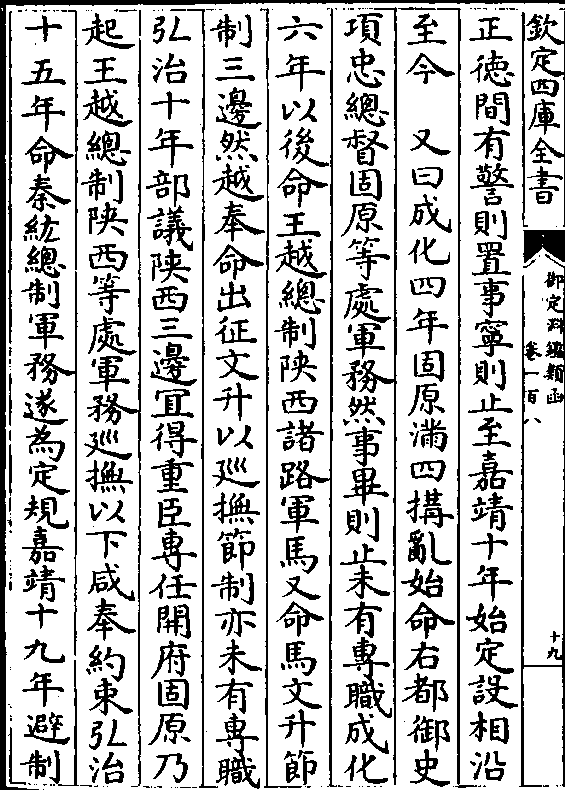 欽定四庫全書
御定淵鑑類函
卷一百八
十九
正德間有警則置事寧則止至嘉靖十年始定設相沿
至今　又曰成化四年固原滿四搆亂始命右都御史
項忠總督固原等處軍務然事畢則止未有專職成化
六年以後命王越總制陝西諸路軍馬又命馬文升節
制三邊然越奉命出征文升以廵撫節制亦未有專職
弘治十年部議陝西三邊宜得重臣專任開府固原乃
起王越總制陝西等處軍務廵撫以下咸奉約束弘治
十五年命秦紘總制軍務遂為定規嘉靖十九年避制